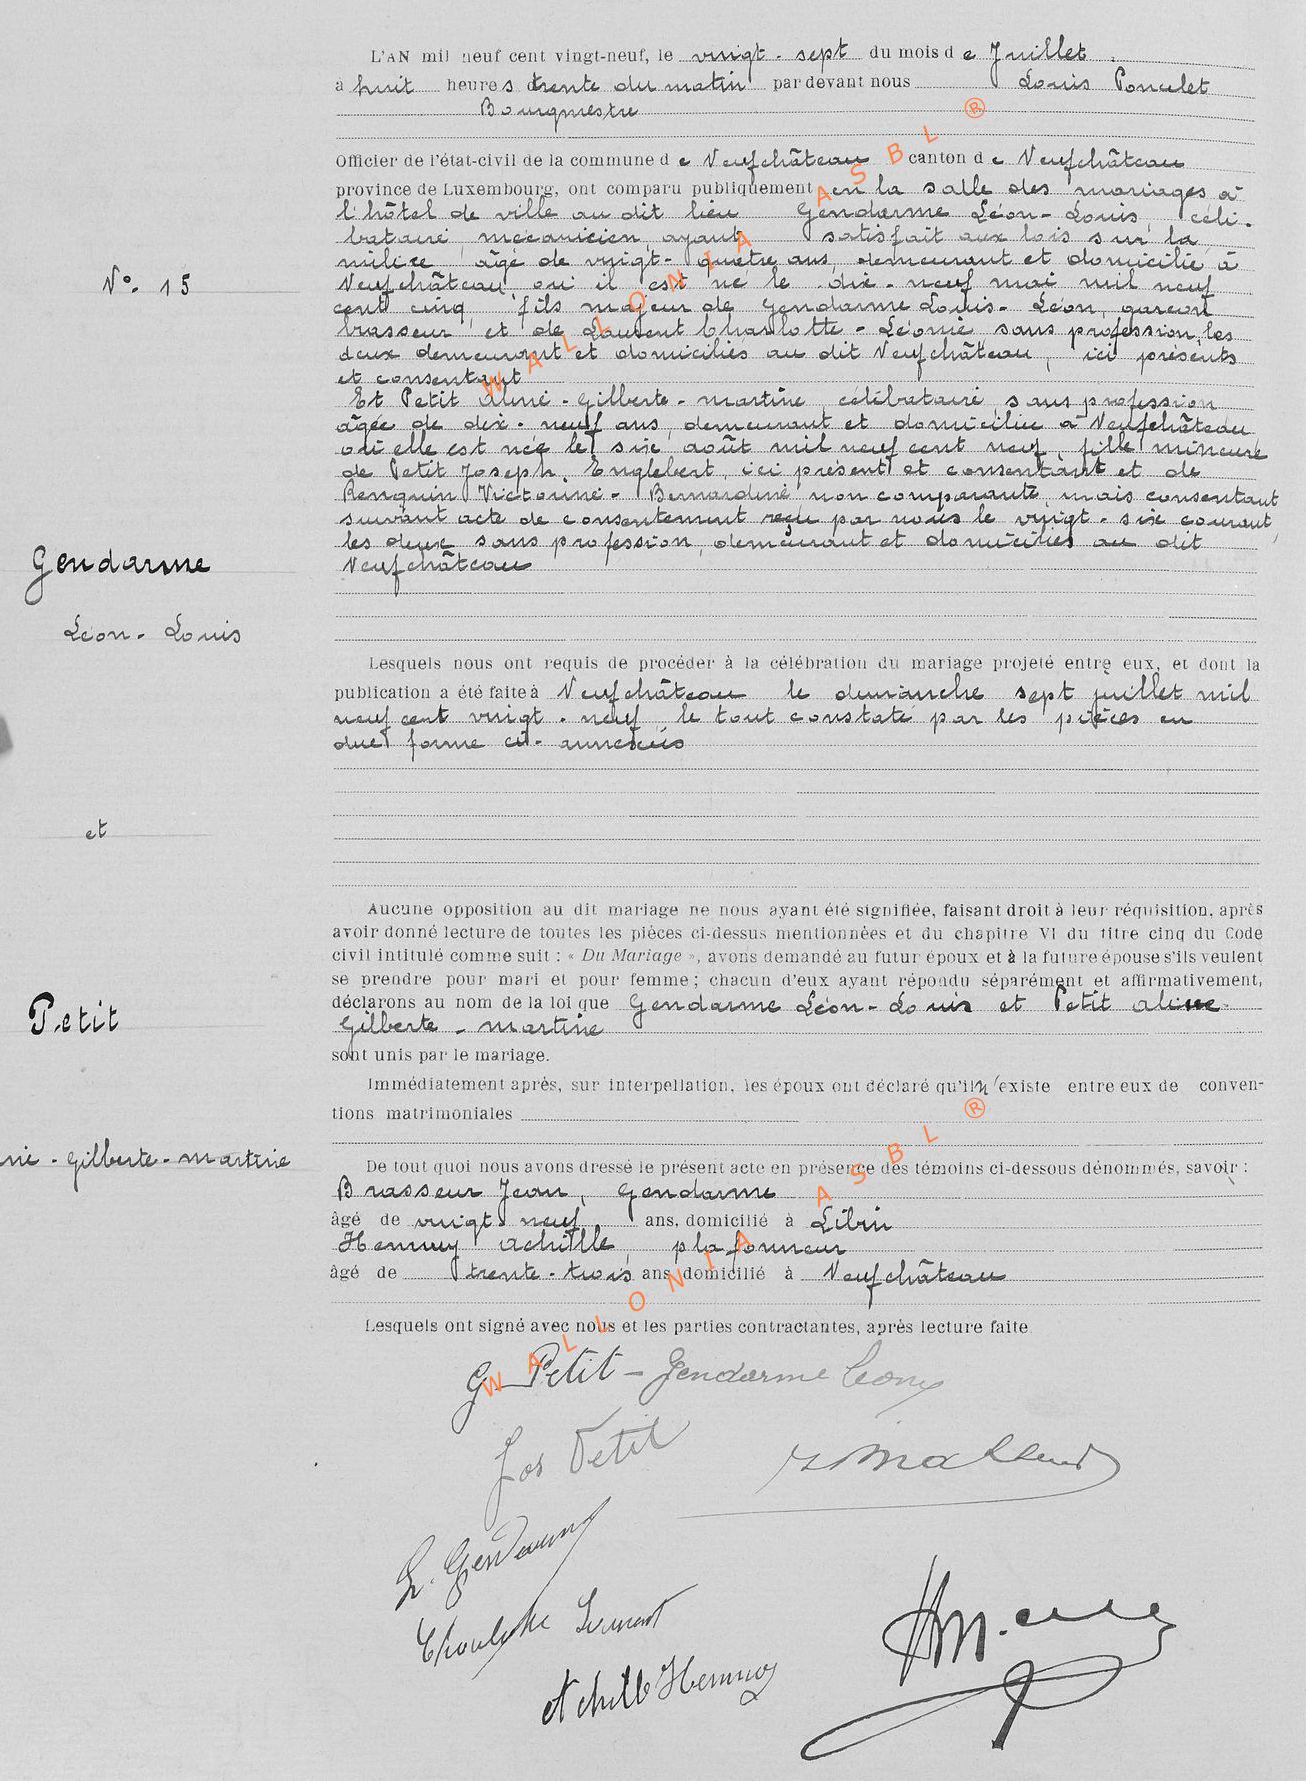 L'AN mil neuf cent vingt-neuf, le vingt-sept du mois de Juillet
à huit heures trente du matin par devant nous Louis Poncelet
Bourgmestre
Officier de l'état-civil de la commune de Neufchâteau canton de Neufchâteau
province de Luxembourg, ont comparu publiquement en la salle des mariages à
l'hôtel de ville au dit lieu Gendarme Léon-Louis, céli-
bataire, mécanicien, ayant satisfait aux lois sur la
milice, âgé de vingt-quatre ans, demeurant et domicilié à
Neufchâteau où il est né le dix-neuf mai mil neuf
cent cinq, fils majeur de Gendarme Louis-Léon, garçon
brasseur et de Laurent Charlotte-Léonie sans profession, les
deux demeurant et domiciliés au dit Neufchâteau, ici présents
et consentant
Et Petit Aline-Gilberte-Martine, célibataire, sans profession
âgée de dix-neuf ans, demeurant et domiciliée à Neufchâteau
où elle est née le six août mil neuf cent neuf, fille mineure
de Petit Joseph, Englebert, ici présent et consentant et de
Renquin Victorine-Bernardine non comparante, mais consentant
suivant acte de consentement reçu par nous le vingt-six courant,
les deux sans profession, demeurant et domiciliés au dit
Neufchâteau
N°. 15
Gendarme
Léon-Louis
et
Petit
-Gilberte-Martine
Lesquels nous ont requis de procéder à la célébration du mariage projeté entre eux, et dont la
publication a été faite à Neufchâteau le dimanche sept juillet mil
neuf cent vingt-neuf, le tout constaté par les pièces en
due forme ci-annexées
Aucune opposition au dit mariage ne nous ayant été signifiée, faisant droit à leur réquisition, après
avoir donné lecture de toutes les pièces ci-dessus mentionnées et du chapitre VI du titre cinq du Code
civil intitulé comme suit : « Du Mariage », avons demandé au futur époux et à la future épouse s'ils veulent
se prendre pour mari et pour femme ; chacun d'eux ayant répondu séparément et affirmativement,
déclarons au nom de la loi que Gendarme Léon-Louis et Petit Aline
Gilberte-Martine
sont unis par le mariage.
Immédiatement après, sur interpellation, les époux ont déclaré qu'il n'existe entre eux de conven-
tions matrimoniales
De tout quoi nous avons dressé le présent acte en présence des témoins ci-dessous dénommés, savoir :
Brasseur Jean, Gendarme
âgé de vingt neuf ans, domicilié à Libin
Hennuy Achille, plafonneur
âgé de trente-trois ans, domicilié à Neufchâteau
Lesquels ont signé avec nous et les parties contractantes, après lecture faite
G Petit - Gendarme Léon
Jos Petit
L. Gendarme
Charlotte Laurent
Achille Hennuy
WALLONIA ASBL ®
WALLONIA ASBL ®